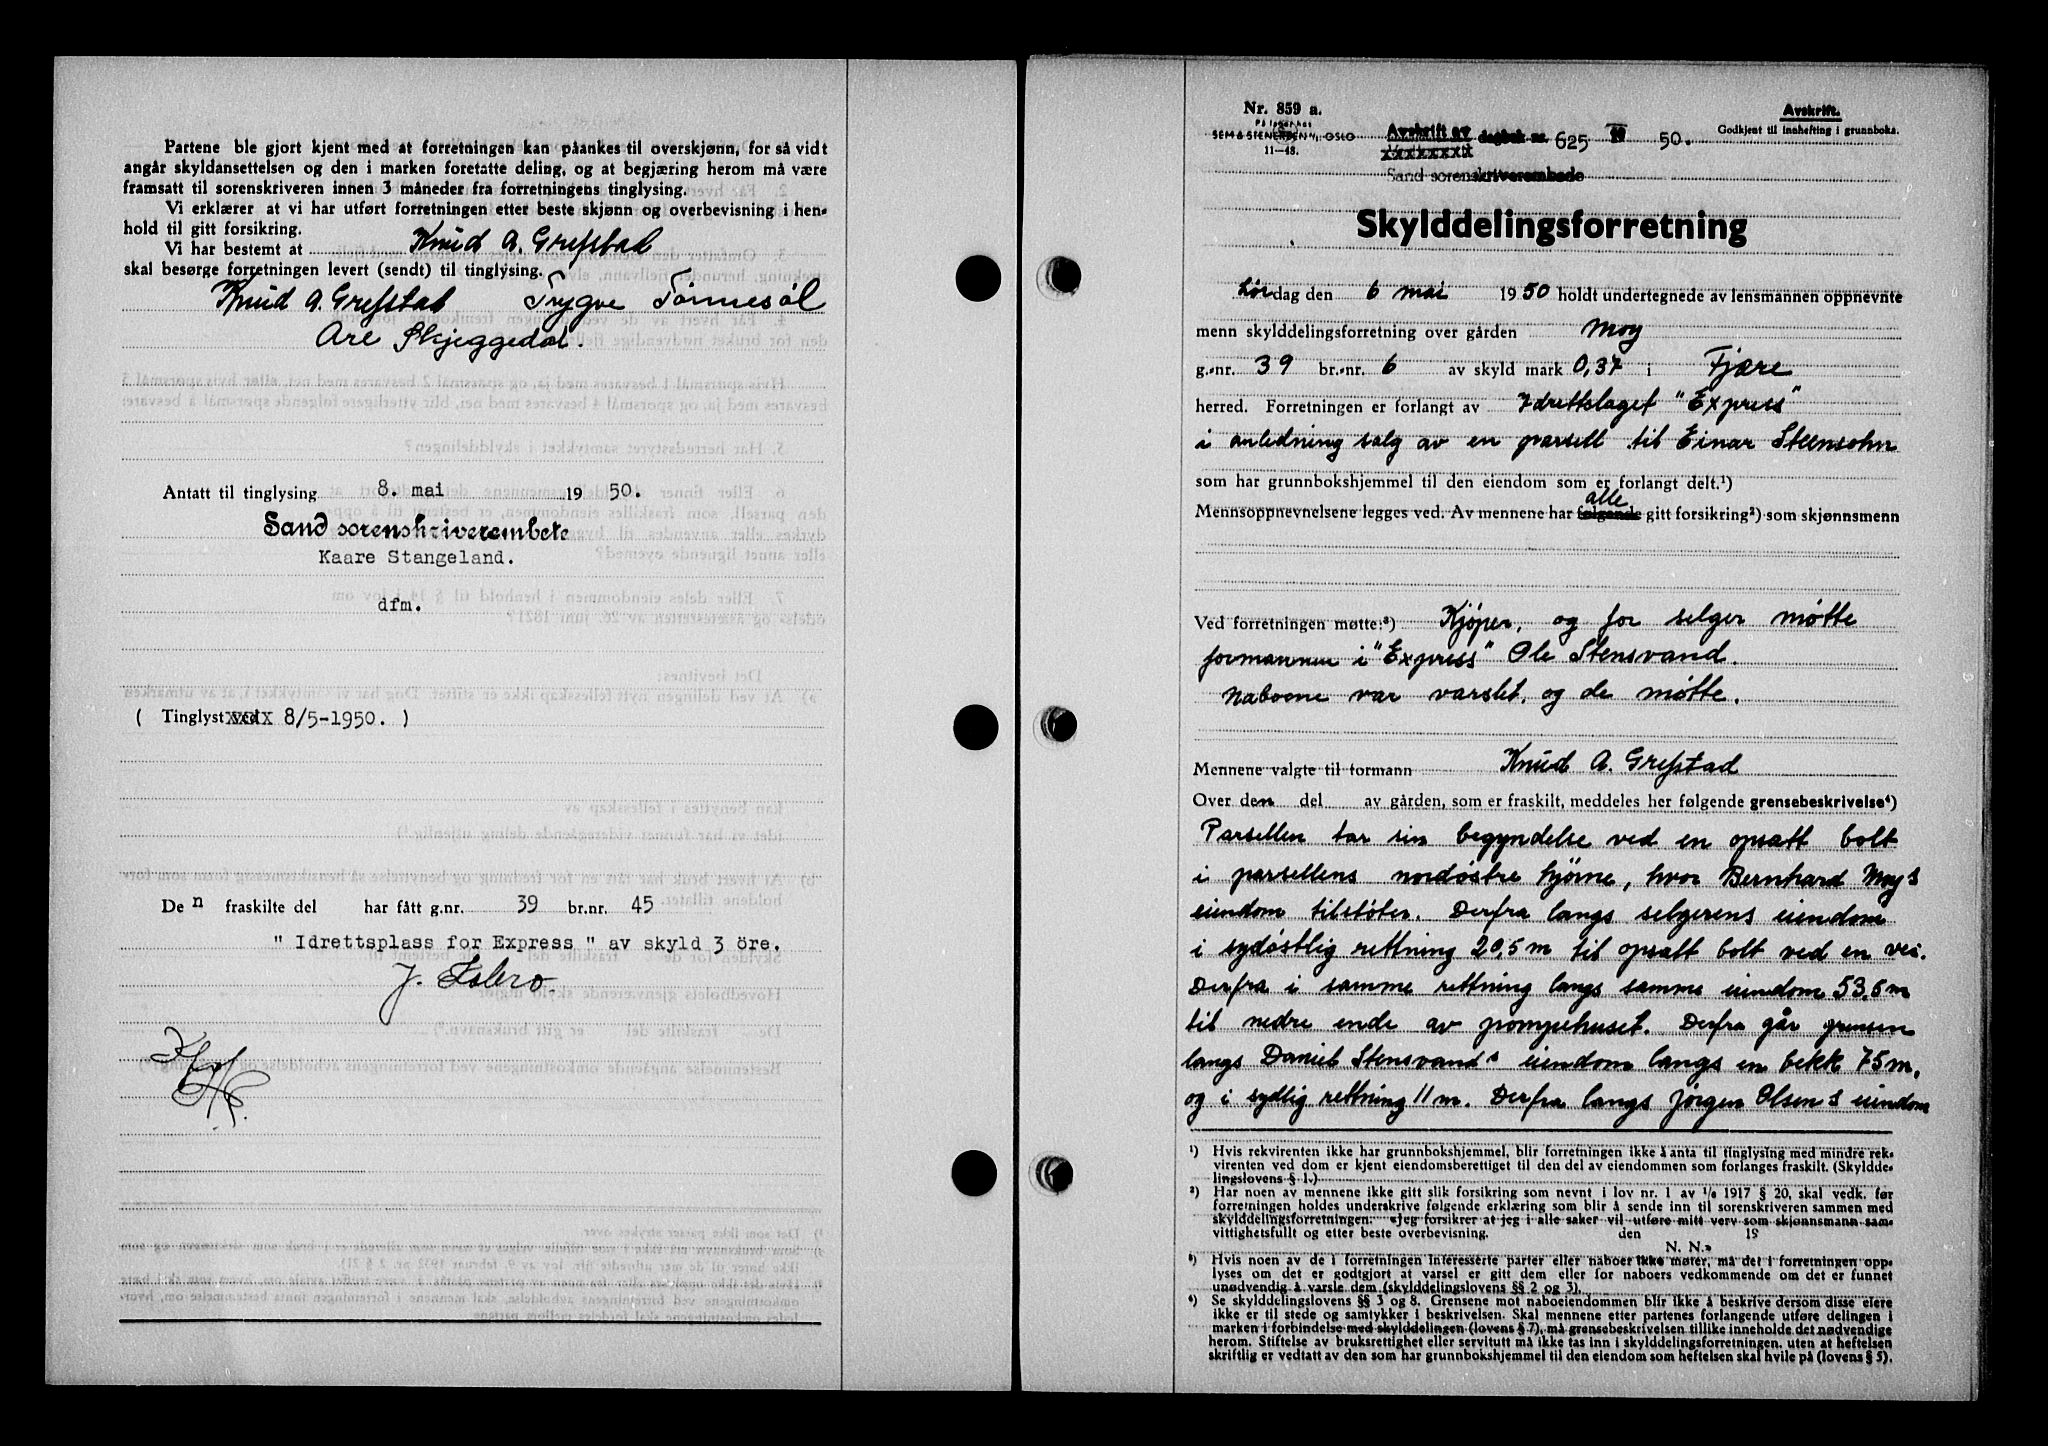 Partene ble gjort kjent med at forretningen kan påankes til overskjønn, for så vidt
angår skyldansettelsen og den i marken foretatte deling, og at begjæring herom må være
framsatt til sorenskriveren innen 3 måneder fra forretningens tinglysing.
Vi erklærer at vi har utført forretningen etter beste skjønn og overbevisning i hen-
hold til gitt forsikring.
Vi har bestemt at Knud A. Grefstad
skal besørge forretningen levert (sendt) til tinglysing.
Knud A. Grefstad Trygve Tönnesöl
Are Skjeggedal.
Antatt til tinglysing 8. mai 19 50.
Sand sorenskriverembete
Kaare Stangeland.
dfm.
( Tinglyst 8/5-1950. )
De n fraskilte del har fått g.nr. 39 br.nr. 45
" Idrettsplass for Express " av skyld 3 öre.
Nr. 859 a.
På lager hos
SEM & STENERSEN A/S, OSLO
11—48.
Avskrift av dagbok nr. 625 19 50.
Sand sorenskriverembede
Avskrift.
Godkjent til innhefting i grunnboka.
Skylddelingsforretning
Lördag den 6 mai 1950 holdt undertegnede av lensmannen oppnevnte
menn skylddelingsforretning over gården Moy
g.-nr. 39 br.-nr. 6 av skyld mark 0,37 i Fjære
herred. Forretningen er forlangt av Idrettslaget "Express"
i anledning salg av en parsell til Einar Steensohn
som har grunnbokshjemmel til den eiendom som er forlangt delt.¹)
Mennsoppnevnelsene legges ved. Av mennene har følgende alle gitt forsikring²) som skjønnsmenn
Ved forretningen møtte:³) Kjøper, og for selger møtte
formannen i "Express" Ole Stensvand.
Naboene var varslet, og de møtte.
Mennene valgte til formann Knud A. Grefstad
Over den del av gården, som er fraskilt, meddeles her følgende grensebeskrivelse⁴)
Parsellen tar sin begyndelse ved en opsatt bolt
i parsellens nordöstre hjörne, hvor Bernhard Moy's
eiendom tilstöter. Derfra langs selgerens eiendom
i sydöstlig rettning 20,5 m til opsatt bolt ved en vei.
Derfra i samme rettning langs samme eiendom 53,5 m
til nedre ende av pompehuset. Derfra går grensen
langs Daniel Stensvand's eiendom langs en bekk 75 m,
og i sydlig rettning 11 m. Derfra langs Jörgen Olsen's eiendom
¹) Hvis rekvirenten ikke har grunnbokshjemmel, blir forretningen ikke å anta til tinglysing med mindre rek-
virenten ved dom er kjent eiendomsberettiget til den del av eiendommen som forlanges fraskilt. (Skyldde-
lingslovens § 1.)
²) Har noen av mennene ikke gitt slik forsikring som nevnt i lov nr. 1 av 1/6 1917 § 20, skal vedk. før
forretningen holdes underskrive følgende erklæring som blir å sende inn til sorenskriveren sammen med
skylddelingsforretningen: «Jeg forsikrer at jeg i alle saker vil utføre mitt verv som skjønnsmann sam-
vittighetsfullt og etter beste overbevisning. den 19
N. N.»
³) Hvis noen av de i forretningen interesserte parter eller naboer ikke møter, må det i forretningen opp-
lyses om det er godtgjort at varsel er gitt dem eller for naboers vedkommende om det er funnet
unødvendig å varsle dem (skylddelingslovens §§ 2 og 3).
⁴) Se skylddelingslovens §§ 3 og 8. Grensene mot naboeiendommen blir ikke å beskrive dersom disse eiere
ikke er til stede og samtykker i beskrivelsen. Skal mennene etter partenes forlangende utføre delingen i
marken i forbindelse med skylddelingen (lovens § 7), må grensebeskrivelsen tillike inneholde det nødvendige
herom. Stiftelse av bruksrettighet eller servitutt må ikke tas inn i skylddelingsforretningen, uten at heftelsen
skriftlig er vedtatt av den som har grunnbokshjemmel til den eiendom som heftelsen skal hvile på (lovens § 5).